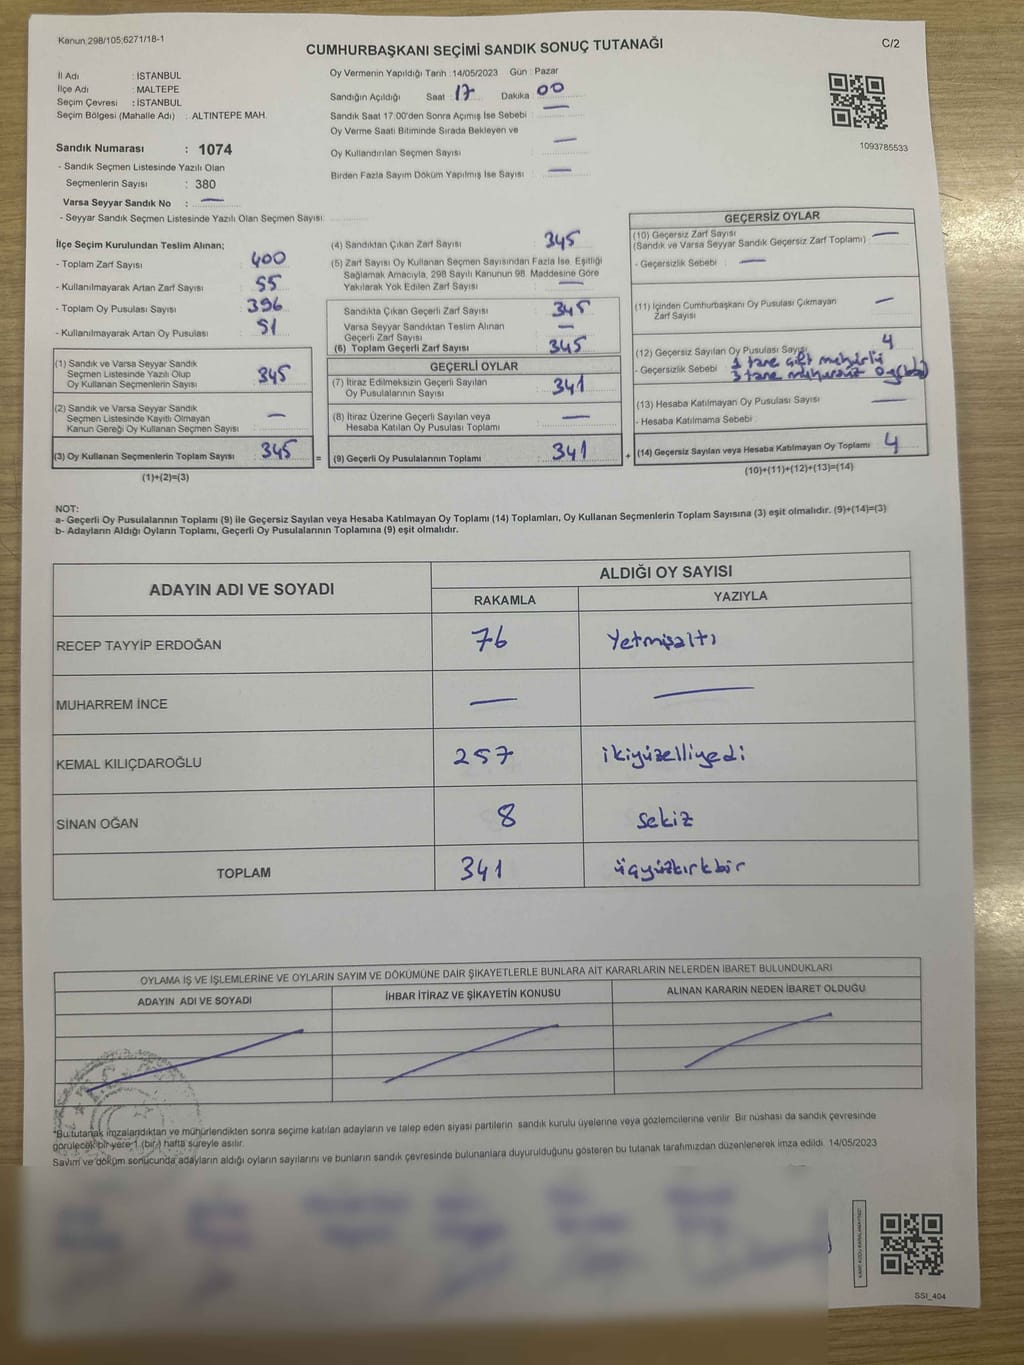 Kanun,298/105,6271/18-1
CUMHURBAŞKANI SEÇİMİ SANDIK SONUÇ TUTANAĞI
C/2
İl Adı : İSTANBUL
İlçe Adı : MALTEPE
Seçim Çevresi : İSTANBUL
Seçim Bölgesi (Mahalle Adı) : ALTINTEPE MAH.
Oy Vermenin Yapıldığı Tarih :14/05/2023 Gün : Pazar
Sandığın Açıldığı Saat : 17 Dakika 00
Sandık Saat 17:00'den Sonra Açımış İse Sebebi : —
Oy Verme Saati Bitiminde Sırada Bekleyen ve
Oy Kullandırılan Seçmen Sayısı : —
Birden Fazla Sayım Döküm Yapılmış İse Sayısı : —
1093785533
Sandık Numarası : 1074
- Sandık Seçmen Listesinde Yazılı Olan
Seçmenlerin Sayısı : 380
Varsa Seyyar Sandık No : —
- Seyyar Sandık Seçmen Listesinde Yazılı Olan Seçmen Sayısı:
İlçe Seçim Kurulundan Teslim Alınan;
- Toplam Zarf Sayısı : 400
- Kullanılmayarak Artan Zarf Sayısı : 55
- Toplam Oy Pusulası Sayısı : 396
- Kullanılmayarak Artan Oy Pusulası : 51
(1) Sandık ve Varsa Seyyar Sandık
Seçmen Listesinde Yazılı Olup
Oy Kullanan Seçmenlerin Sayısı : 345
(2) Sandık ve Varsa Seyyar Sandık
Seçmen Listesinde Kayıtlı Olmayan
Kanun Gereği Oy Kullanan Seçmen Sayısı : —
(3) Oy Kullanan Seçmenlerin Toplam Sayısı : 345 =
(1)+(2)=(3)
(4) Sandıktan Çıkan Zarf Sayısı : 345
(5) Zarf Sayısı Oy Kullanan Seçmen Sayısından Fazla İse, Eşitliği
Sağlamak Amacıyla, 298 Sayılı Kanunun 98. Maddesine Göre
Yakılarak Yok Edilen Zarf Sayısı : —
Sandıkta Çıkan Geçerli Zarf Sayısı : 345
Varsa Seyyar Sandıktan Teslim Alınan
Geçerli Zarf Sayısı : —
(6) Toplam Geçerli Zarf Sayısı : 345
GEÇERLİ OYLAR
(7) İtiraz Edilmeksizin Geçerli Sayılan
Oy Pusulalarının Sayısı : 341
(8) İtiraz Üzerine Geçerli Sayılan veya
Hesaba Katılan Oy Pusulası Toplamı : —
(9) Geçerli Oy Pusulalarının Toplamı : 341 +
GEÇERSİZ OYLAR
(10) Geçersiz Zarf Sayısı : —
(Sandık ve Varsa Seyyar Sandık Geçersiz Zarf Toplamı)
- Geçersizlik Sebebi : —
(11) İçinden Cumhurbaşkanı Oy Pusulası Çıkmayan
Zarf Sayısı : —
(12) Geçersiz Sayılan Oy Pusulası Sayısı 4
- Geçersizlik Sebebi : 1 tane çift mühürlü
3 tane mühürsüz oy
(13) Hesaba Katılmayan Oy Pusulası Sayısı —
- Hesaba Katılmama Sebebi :
(14) Geçersiz Sayılan veya Hesaba Katılmayan Oy Toplamı : 4
(10)+(11)+(12)+(13)=(14)
NOT:
a- Geçerli Oy Pusulalarının Toplamı (9) ile Geçersiz Sayılan veya Hesaba Katılmayan Oy Toplamı (14) Toplamları, Oy Kullanan Seçmenlerin Toplam Sayısına (3) eşit olmalıdır. (9)+(14)=(3)
b- Adayların Aldığı Oyların Toplamı, Geçerli Oy Pusulalarının Toplamına (9) eşit olmalıdır.
ADAYIN ADI VE SOYADI
ALDIĞI OY SAYISI
RAKAMLA YAZIYLA
RECEP TAYYİP ERDOĞAN 76 Yetmişaltı
MUHARREM İNCE — —
KEMAL KILIÇDAROĞLU 257 ikiyüzelliyedi
SİNAN OĞAN 8 sekiz
TOPLAM 341 üçyüzkırkbir
OYLAMA İŞ VE İŞLEMLERİNE VE OYLARIN SAYIM VE DÖKÜMÜNE DAİR ŞİKAYETLERLE BUNLARA AİT KARARLARIN NELERDEN İBARET BULUNDUKLARI
ADAYIN ADI VE SOYADI İHBAR İTİRAZ VE ŞİKAYETİN KONUSU ALINAN KARARIN NEDEN İBARET OLDUĞU
*Bu tutanak imzalandıktan ve mühürlendikten sonra seçime katılan adayların ve talep eden siyasi partilerin sandık kurulu üyelerine veya gözlemcilerine verilir. Bir nüshası da sandık çevresinde
görülecek bir yere 1 (bir) hafta süreyle asılır.
Sayım ve döküm sonucunda adayların aldığı oyların sayılarını ve bunların sandık çevresinde bulunanlara duyurulduğunu gösteren bu tutanak tarafımızdan düzenlenerek imza edildi. 14/05/2023
SSI_404